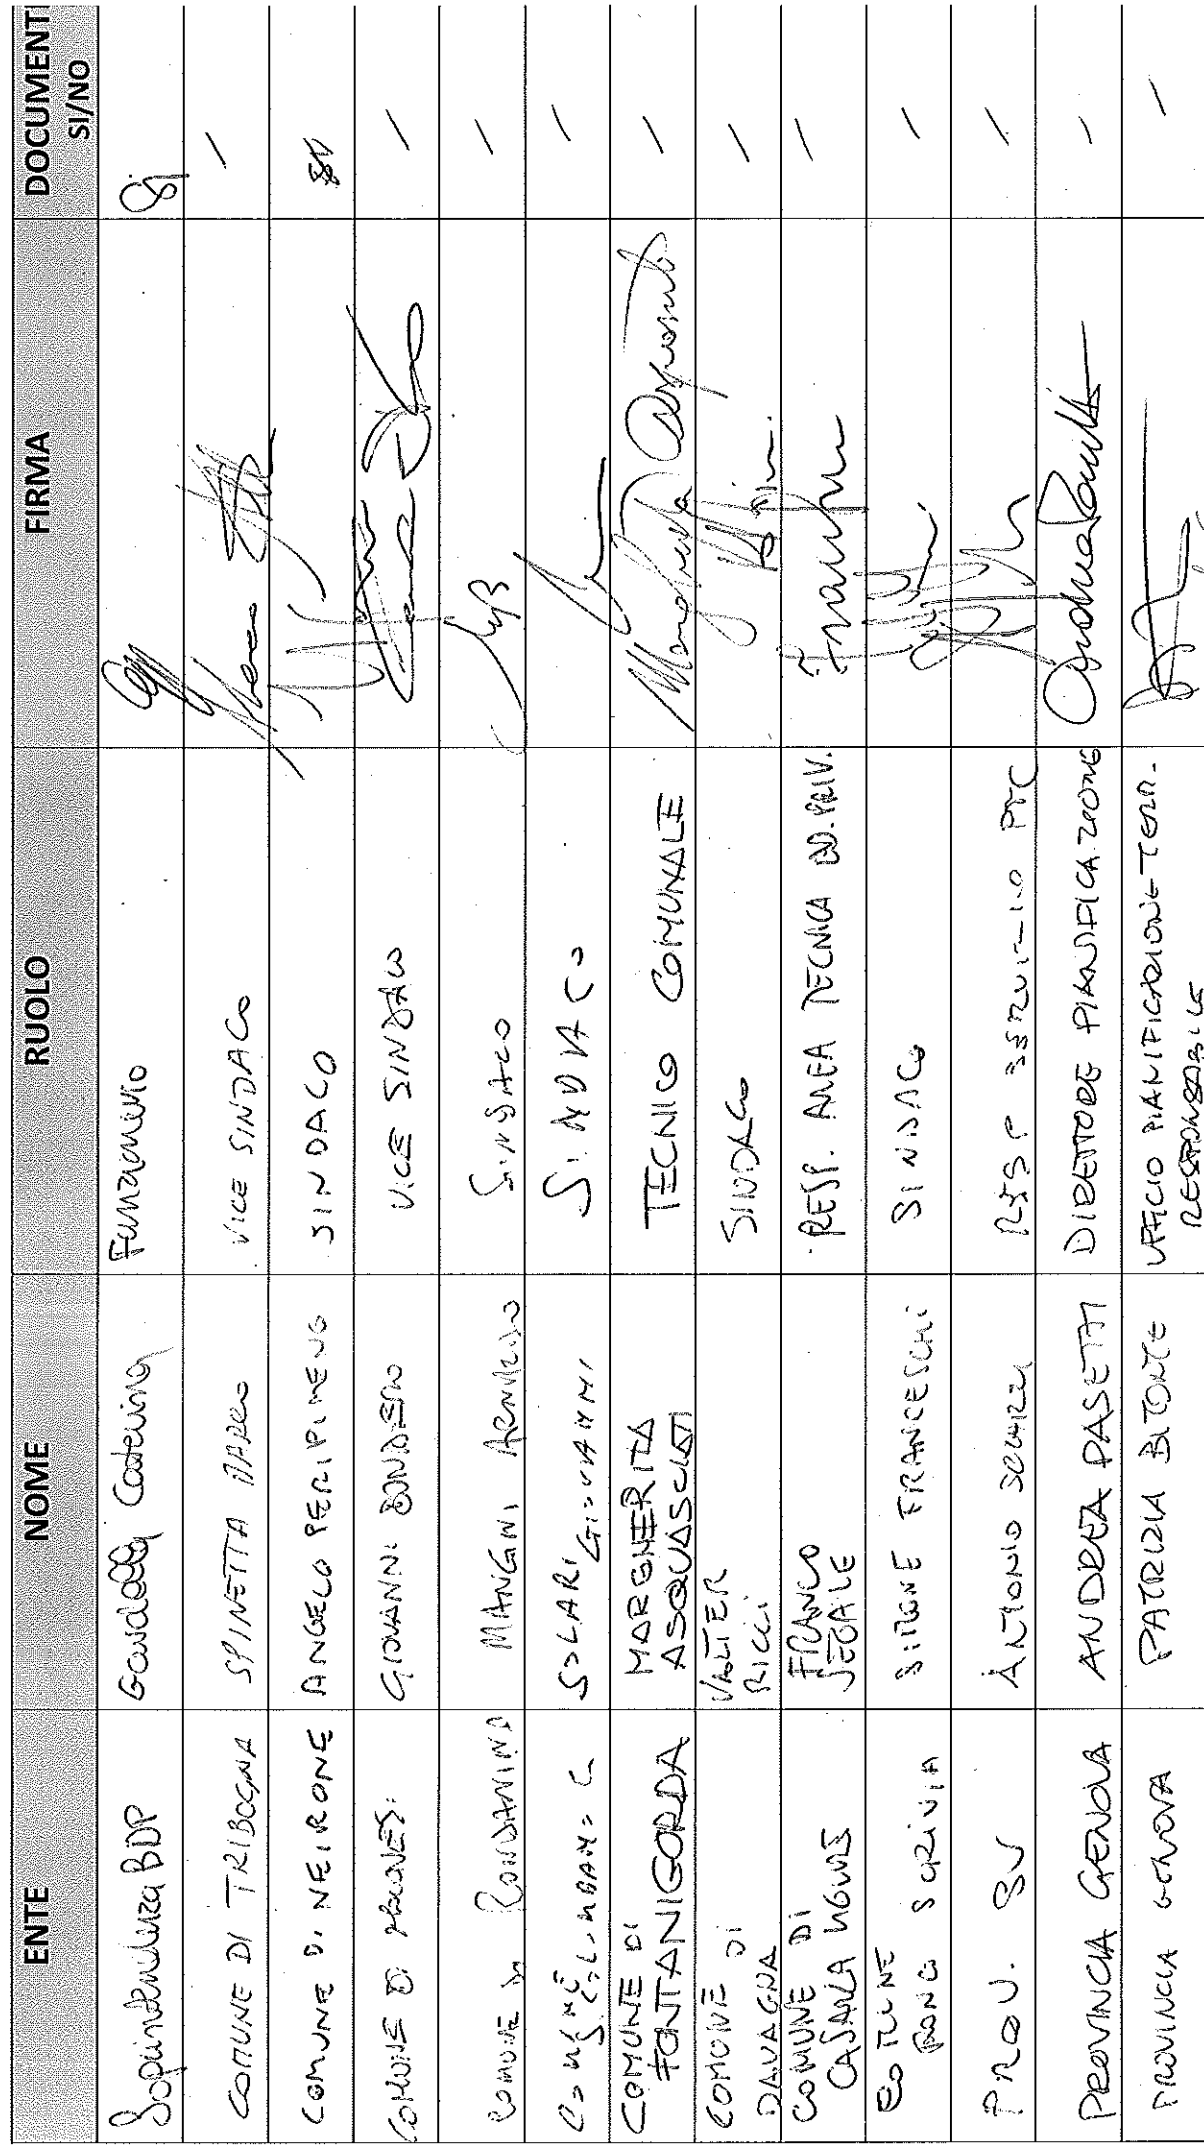 ENTE NOME RUOLO FIRMA DOCUMENTI SI/NO
Sopintendenza BDP Gardella Caterina Funzionario Si
COMUNE DI TRIBOGNA SPINETTA MARCO VICE SINDACO /
COMUNE DI NEIRONE ANGELO PERIPIMENO SINDACO SI
COMUNE DI MOCONESI GIOVANNI DONDERO VICE SINDACO /
COMUNE DI RONDANINA MANGINI ARNALDO SINDACO /
COMUNE SOLARI GIOVANNI SINDACO /
COMUNE DI FONTANIGORDA MARGHERITA ASQUASCIATI TECNICO COMUNALE Margherita Asquasciati /
COMUNE DI DAVAGNA VALTER RICCI SINDACO /
COMUNE DI CASARZA LIGURE FRANCO SEGALE RESP. AREA TECNICA ED. PRIV. /
COMUNE RONCO SCRIVIA SIMONE FRANCESCHI SINDACO /
PROV. SV ANTONIO SCHIZZI RESP SERVIZIO PTC /
PROVINCIA GENOVA ANDREA PASETTI DIRETTORE PIANIFICAZIONE Andrea Pasetti /
PROVINCIA GENOVA PATRIZIA BITONTE UFFICIO PIANIFICAZIONE TERR. RESPONSABILE /